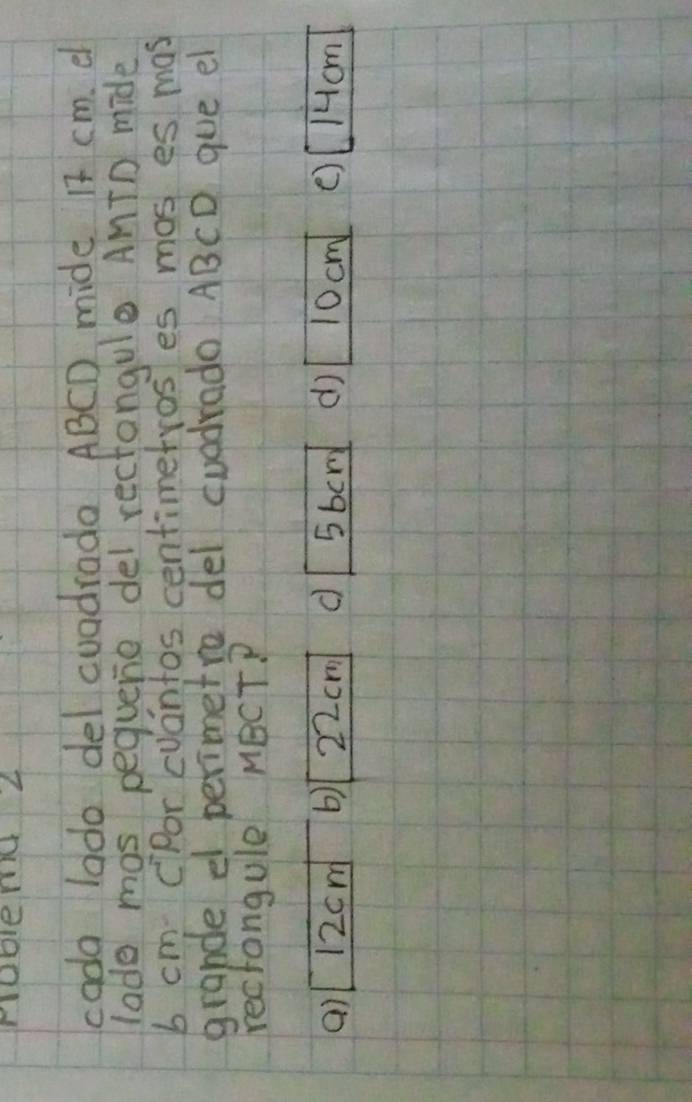 Problema 2
cada lado del cuadrado ABCD mide 17 cm. el
lado mas pequeño del rectangulo AMTD mide
6 cm. ¿Por cuántos centimetros es mas es mas
grande el perimetro del cuadrado ABCD que el
rectangulo MBCT?
a) 12cm b) 22cm c) 56cm d) 10cm e) 14cm